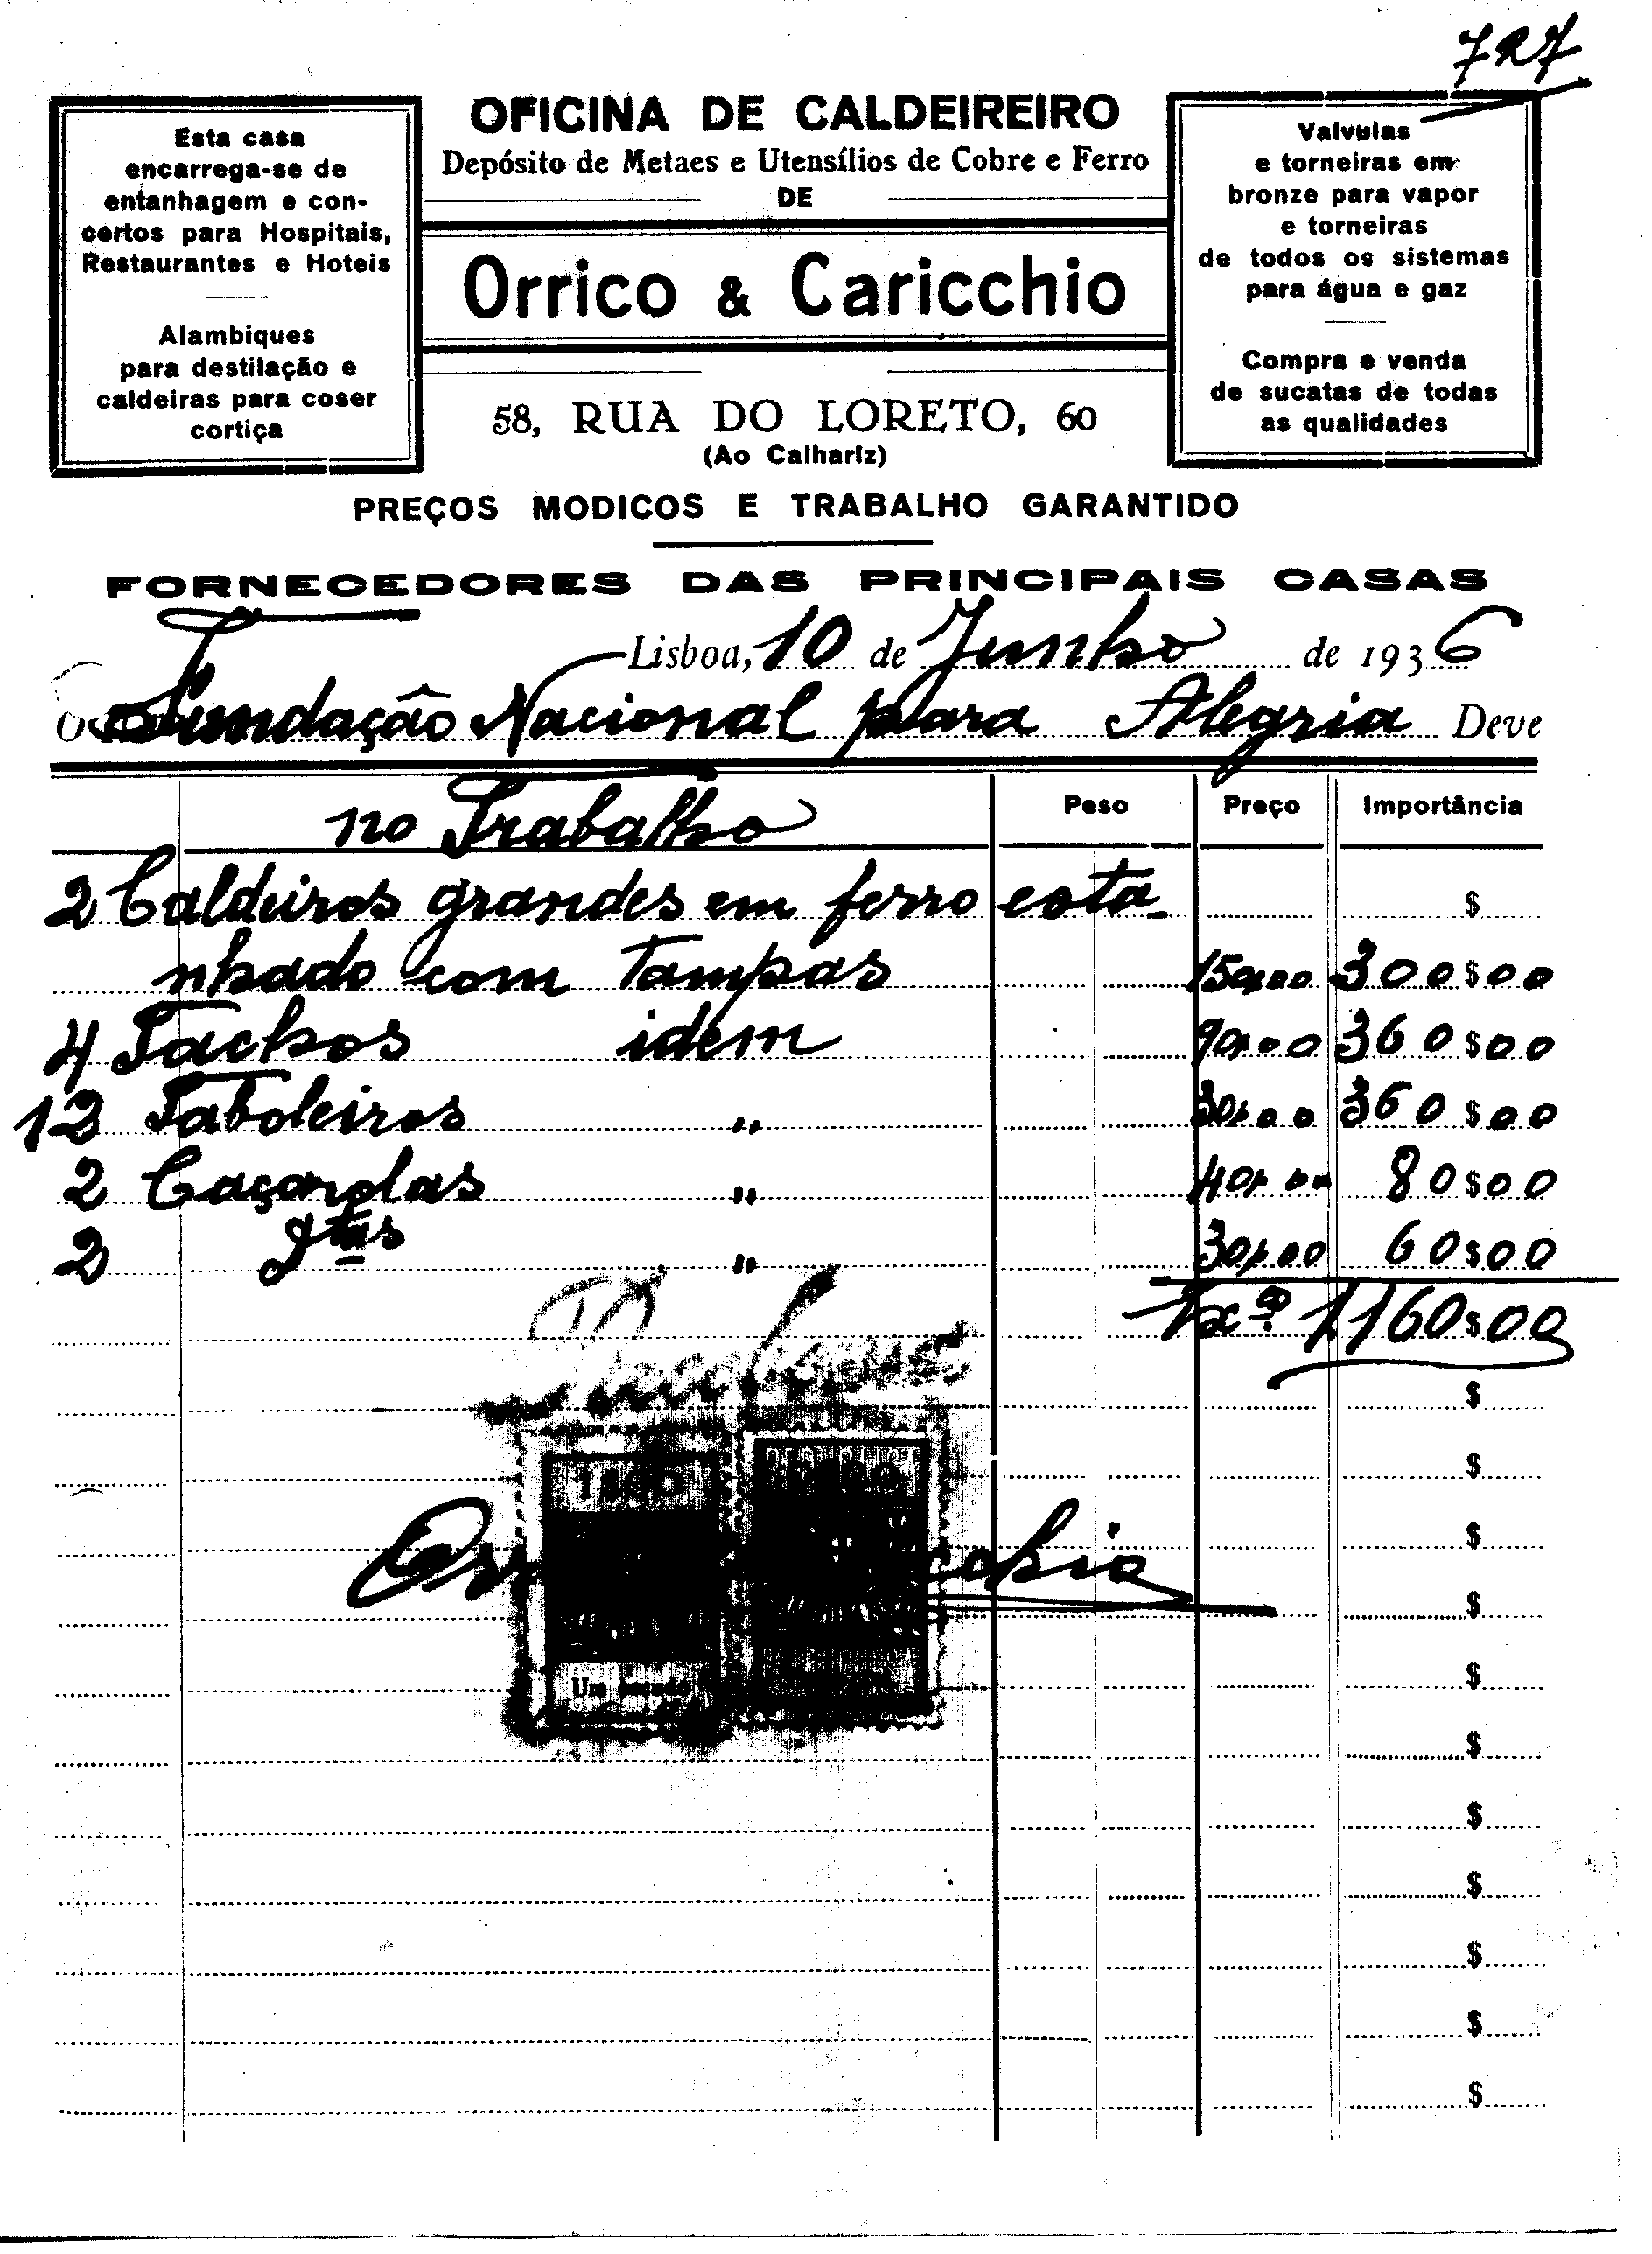 727
Esta casa
encarrega-se de
entanhagem e con-
certos para Hospitais,
Restaurantes e Hoteis
Alambiques
para destilação e
caldeiras para coser
cortiça
OFICINA DE CALDEIREIRO
Depósito de Metaes e Utensílios de Cobre e Ferro
DE
Orrico & Caricchio
58, RUA DO LORETO, 60
(Ao Calhariz)
Valvulas
e torneiras em
bronze para vapor
e torneiras
de todos os sistemas
para água e gaz
Compra e venda
de sucatas de todas
as qualidades
PREÇOS MODICOS E TRABALHO GARANTIDO
FORNECEDORES DAS PRINCIPAIS CASAS
Lisboa, 10 de Junho de 1936
Fundação Nacional para Alegria Deve
no Trabalho Peso Preço Importância
2 Caldeiros grandes em ferro esta- $
nhado com Tampas 150$00 300$00
4 Tachos idem 90$00 360$00
12 Taboleiros " 30$00 360$00
2 Caçarolas " 40$00 80$00
2 Dtas " 30$00 60$00
1160$00
$
$
$
$
$
$
$
$
$
$
$
Um escudo